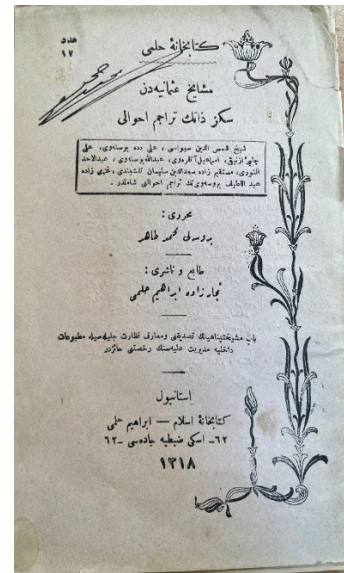 كتابخانهٔ حلمى
عدد
١٧
مشايخ عثمانيه‌دن
سكز ذاتك تراجم احوالى
شيخ شمس الدين سيواسى ، على دده بوسنه‌وى، على
چلبئ ازنيقى، اسماعيل آنقره‌وى، عبدالله بوسنه‌وى ، عبدالاحد
النورى، مستقيم زاده سعدالدين سليمان نقشبندى ، غزى زاده
عبد اللطيف بروسه‌وى‌نك تراجم احوالنى شاملدر .
محررى :
بروسه‌لى محمد طاهر
طابع و ناشرى :
نجار زاده ابراهيم حلمى
باب مشيختپناهينك تصديقنى ومعارف نظارت جليله‌سيله مطبوعات
داخليه مديريت عليه‌سنك رخصتنى حائزدر
استانبول
كتابخانهٔ اسلام — ابراهيم حلمى
٦٢- اسكى ضبطيه جاده‌سى -٦٢
١٣١٨